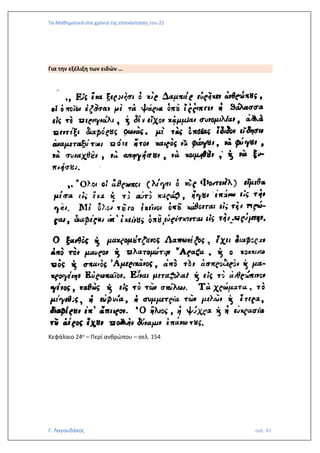 Τα Μαθηματικά στα χρόνια της επανάστασης του 21
Για την εξέλιξη των ειδών …
,, Εἰς ἕνα ξερονῆσι ὁ κὺρ Δαμπιὲρ εὑρῆκεν ἀνθρώπους,
οἱ ὁποῖοι ἐζοῦσαν μὲ τὰ ψάρια ὁποῦ ἔρριπτεν ἡ θάλασσα
εἰς τὸ περιγιάλι, ἢ δὲν εἶχον κἀμμίαν συνομιλίαν, ἀλλὰ
πεντέξι διαφόρους φωνὰς, μὲ τὰς ὁποίας ἔδιδον εἴδησιν
ἀναμεταξύ των πότε ἦτον καιρὸς νὰ φάγουν, νὰ φύγουν,
νὰ συναχθοῦν, νὰ κοιμηθοῦν, ἢ νὰ ξυ-
πνήσουν.
,, Ὅλοι οἱ ἄνθρωποι (λέγει ὁ κὺρ Φοντενὲλ) εἴμεθα
μέσα εἰς ἕνα ἢ τὸ αὐτὸ καράβι, ἤγουν ἐπάνω εἰς τὴν
γῆν. Μὲ ὅλον τοῦτο ἐκεῖνοι ὁποῦ κάθονται εἰς τὴν πρώ-
ραν, διαφέρουν ἀπ' ἐκείνους ὁποῦ εὑρίσκονται εἰς τὴν πρύμνην.
Ὁ ξανθὸς ἢ μακρομούτζουνος Λαπωνέζος, ἔχει διαφορὰν
ἀπὸ τὸν μαῦρον ἢ πλατομούτην Ἄραβα, ἢ ὁ κόκκινω
πὸς ἢ σπανὸς Ἀμερικάνος, ἀπὸ τὸν ἀσπροειδῆ ἢ μα-
κρογένην Εὐρωπαῖον. Εἶναι μεταβολαὶ ἢ εἰς τὸ ἀνθρώπινον
γένος, καθὼς ἢ εἰς τὸ τῶν σκύλων. Τὰ χρώματα, τὸ
μέγεθος, ἡ εὐφυΐα, ἡ συμμετρία τῶν μελῶν ἢ ἕτερα,
διαφέρουν ἐπ' ἄπειρον. Ὁ ἥλιος, ἡ ψύχρα ἢ ἡ εὐκρασία
τοῦ ἀέρος ἔχουν πολλὴν δύναμιν ἐπάνω τους.
Κεφάλαιο 24ᵒ – Περί ανθρώπου – σελ. 154
Γ. Λαγουδάκος
σελ. 43